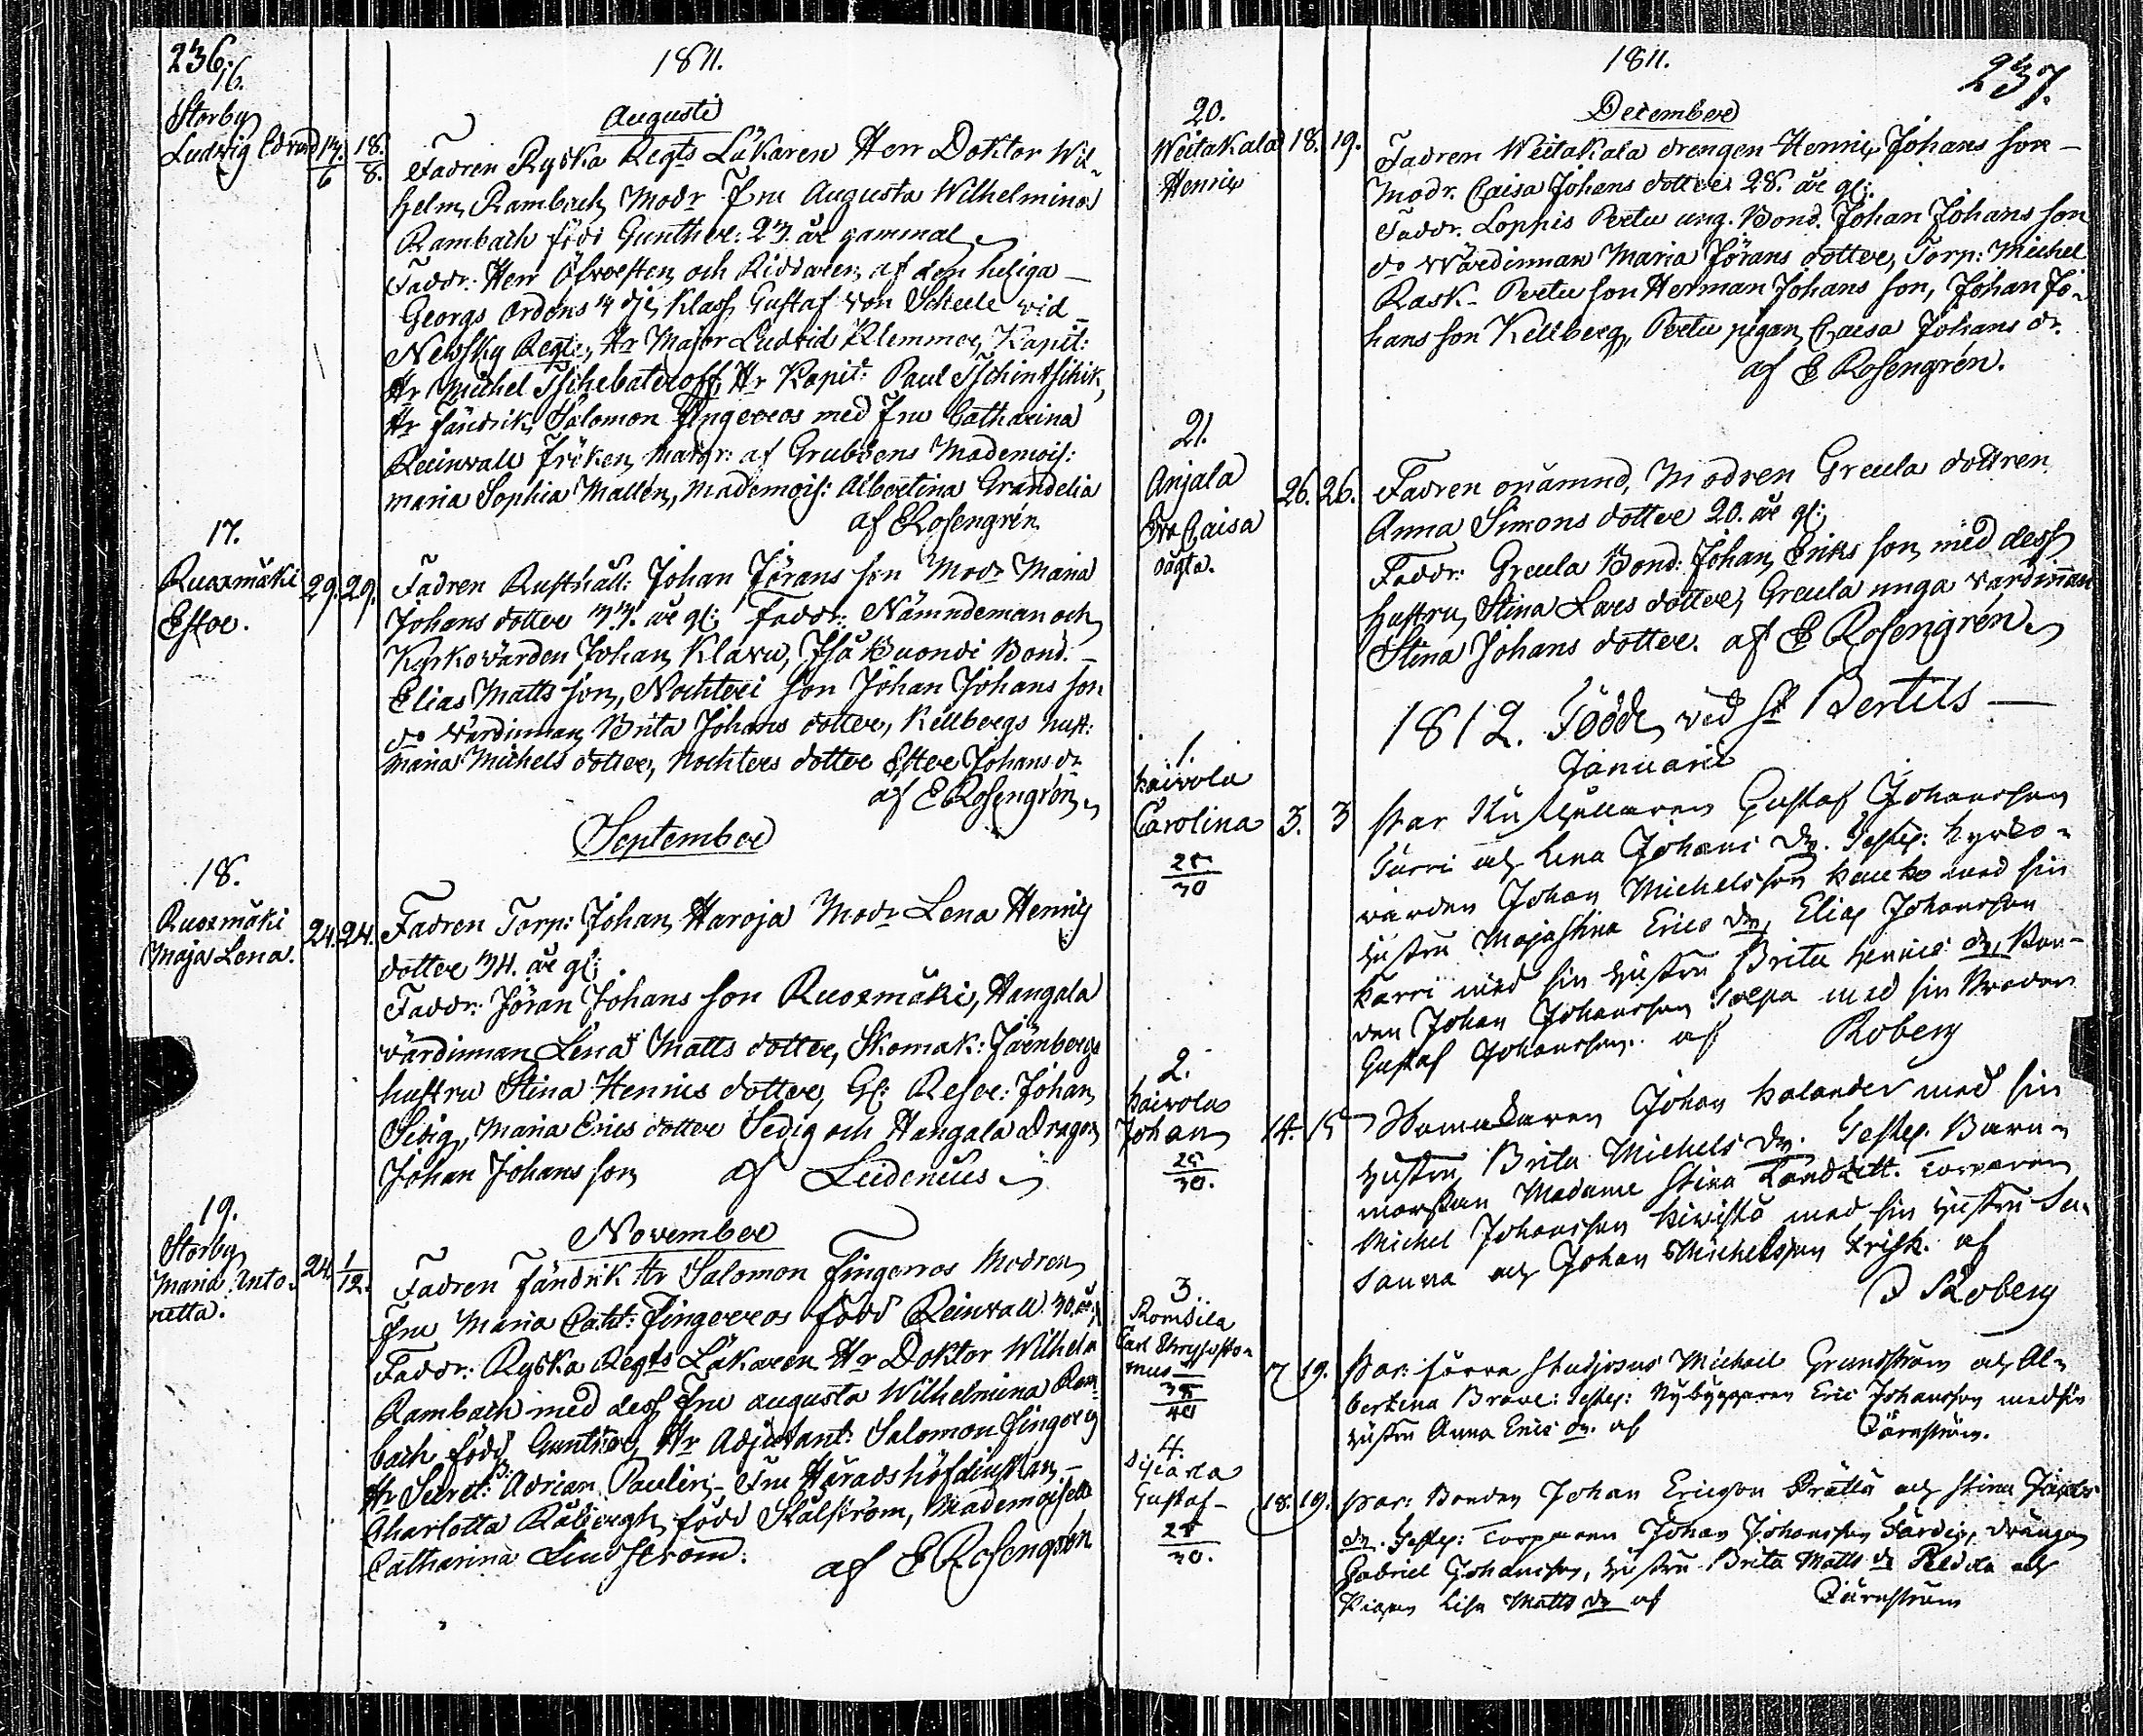 236.
1811.
16.
Storby
Ludvig Edvard 14/6 18./8.
Augusti
Fadren Ryska Regts Läkaren Herr Doktor Wil-
helm Rambach, Modr Fru Augusta Wilhelmina
Rambach född Gunther: 23. åre gammal
Faddr: Herr Öfversten och Riddaren af den heliga
Georgs Ordens 4 dje Klass Gustaf von Scheele vid
Newsky Regte, Hr Major Ludvid Klemmer, Kapit:
Hr Michel Tschebateroff, Hr Kapit: Paul Tschintschik,
Hr Fändrik Salomon Fingerros med Fru Catharina
Reinvall Fröken Margr: af Grubbens Mademois:
Maria Sophia Mallén, Mademois: Albertina Grandelia
af E Rosengrén
17.
Ruozmäki
Ester. 29. 29.
Fadren Rusthåll: Johan Jörans son Modr Maria
Johans dotter 33. åre gl: Faddr: Nämndeman och
Kyrkovärden Johan Klavu, Isä Kuondi Bond.
Elias Matts son, Nochteri son Johan Johans son
do Värdinnan Brita Johans dotter, Kellbergs hust:
Maria Michels dotter, Nochters dotter Ester Johans dr
af E Rosengrén
September
18.
Ruozmäki
Maja Lena. 24. 24.
Fadren Torp: Johan Haroja Modr Lena Henrics
dotter 34. åre gl:
Faddr: Jöran Johans son Ruozmäki, Hangala
värdinnan Lena Matts dotter, Skomak: Järnbergs
hustru Stina Henrics dotter, Gl: Reser: Johan
Sedig, Maria Erics dotter Sedig och Hangala Dragon
Johan Johans son af Leidenius
November
19.
Storby
Maria Anto-
netta. 24. 1/12.
Fadren Fändrik Hr Salomon Fingerros Modren
Fru Maria Cath: Fingerros född Reinvall 30. år:
Faddr: Ryska Regts Läkaren Hr Doktor Wilhelm
Rambach med dess Fru Augusta Wilhelmina Ram-
bach född Gunther, Hr Adjutant: Salomon Fingerry
Hr Secret: Adrian Paulin, Fru Häradshöfdinskan
Charlotta Råbergh född Stålström, Mademoiselle
Catharina Lindström. af E Rosengrén
1811.
237.
December
20.
Weitakala
Henric 18. 19.
Fadren Weitakala drengen Henric Johans son
Modr. Caisa Johans dotter 28. åre gl:
Faddr. Loppis Pertu ung. Bond. Johan Johans son
do Wärdinnan Maria Jörans dotter, Torp: Michel
Rask - Pertu son Herman Johans son, Johan Jo-
hans son Kellberg, Pertu pigan Caisa Johans dr.
af E Rosengrén.
21.
Anjala
Eva Caisa
oägta. 26. 26.
Fadren onämnd, Modren Greula dottren
Anna Simons dotter 20. åre gl:
Faddr: Greula Bond: Johan Erics son med dess
hustru Stina Lars dotter, Greula unga värdinnan
Stina Johans dotter. af E Rosengrén
1812. Födde vid St Bertils
Januarii
1.
Kaivola
Carolina 3. 3
25/30
Par Rusthållaren Gustaf Johansson
Turri och Lena Johans dr. Testes: Kyrko-
värden Johan Michelsson Kauko med sin
hustru Maja Stina Erics dr, Elias Johansson
Karri med sin hustru Brita Henrics dr, Bon-
den Johan Johansson Torpa med sin Broder
Gustaf Johansson. af Roberg
2.
Kaivola
Johan 14. 15
25/30.
Skomakaren Johan Kalander med sin
hustru Brita Michels dr. Testes. Barn-
morskan Madame Stina Landzett. Torparen
Michel Johansson Kivistö med sin hustru Su-
sanna och Johan Michelsson Frisk. af
J Roberg
3.
Romsila
Carl Chrysosto-
mus 7 19.
35/40
Par: förra Studiosus Michael Grundström och Al-
bertina Brave: Testes: Nybyggaren Eric Johansson med sin
hustru Anna Erics dr. af Järnström.
4.
Gustaf 18. 19.
25/30.
Par: Bonden Johan Ericsson Prättä och Stina
dr. Testes: Torparen Johan Johansson Färdig, Drängen
Gabriel Johansson, hustru Brita Matts dr Redda och
Pigan Lisa Matts dr af Järnström